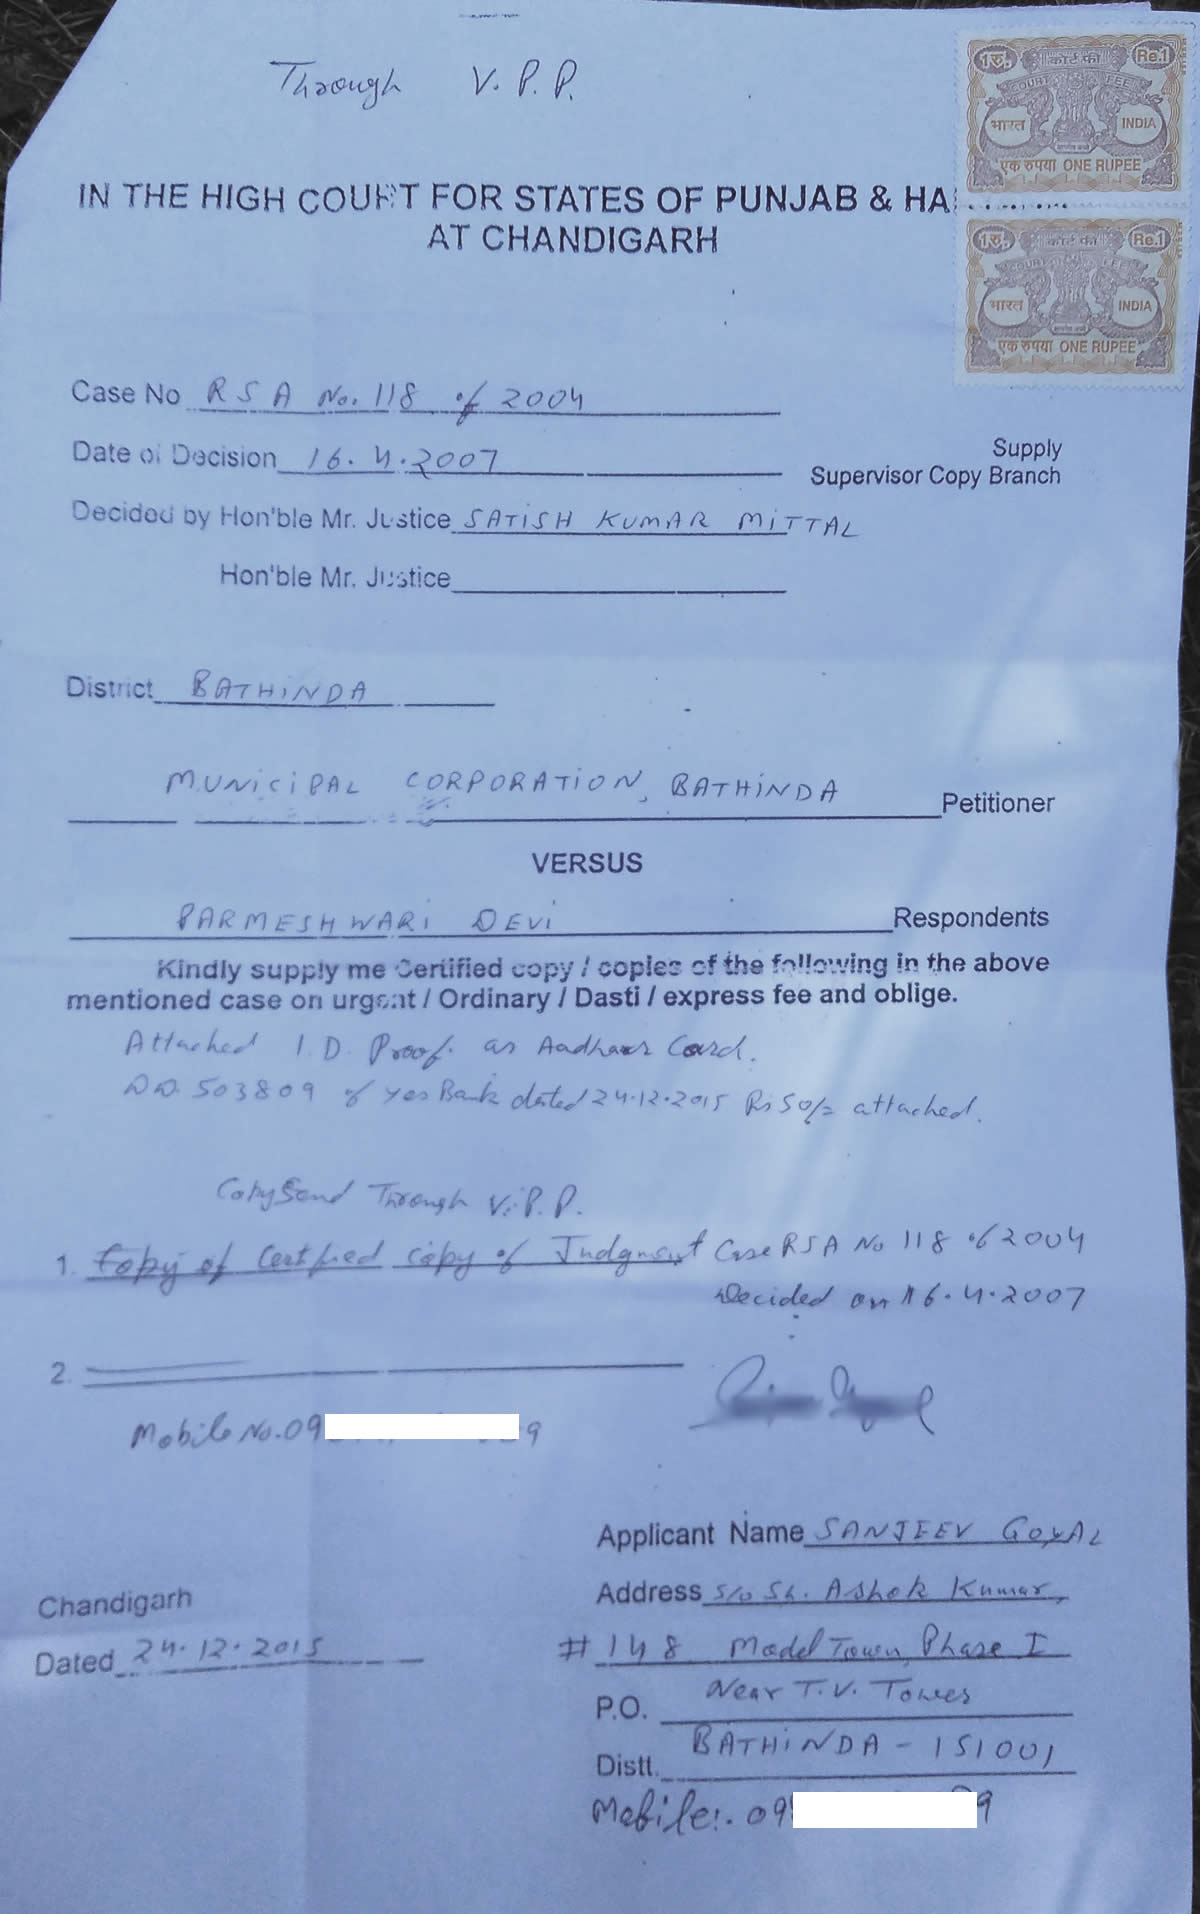 Through V.P.P.
1रु. कोर्ट फी Re.1
COURT FEE
भारत INDIA
एक रुपया ONE RUPEE
IN THE HIGH COURT FOR STATES OF PUNJAB & HA
AT CHANDIGARH
1रु. कोर्ट फी Re.1
COURT FEE
भारत INDIA
एक रुपया ONE RUPEE
Case No RSA No. 118 of 2004
Date of Decision 16.4.2007
Supply
Supervisor Copy Branch
Decided by Hon'ble Mr. Justice SATISH KUMAR MITTAL
Hon'ble Mr. Justice
District BATHINDA
MUNICIPAL CORPORATION, BATHINDA Petitioner
VERSUS
PARMESHWARI DEVI Respondents
Kindly supply me Certified copy / copies of the following in the above
mentioned case on urgent / Ordinary / Dasti / express fee and oblige.
Attached I.D. Proof. as Aadhaar Card.
DD. 503809 of Yes Bank dated 24.12.2015 Rs 50/= attached.
Copy Send Through V.P.P.
1. Copy of Certfied copy of Judgment Case RSA No 118 of 2004
Decided on 16.4.2007
2.
Mobile No. 09 9
Applicant Name SANJEEV GOYAL
Address S/o Sh. Ashok Kumar,
Chandigarh
# 148 Model Town, Phase I
Dated 24.12.2015
P.O. Near T.V. Tower
Distt. BATHINDA - 151001
Mobile:. 09 9